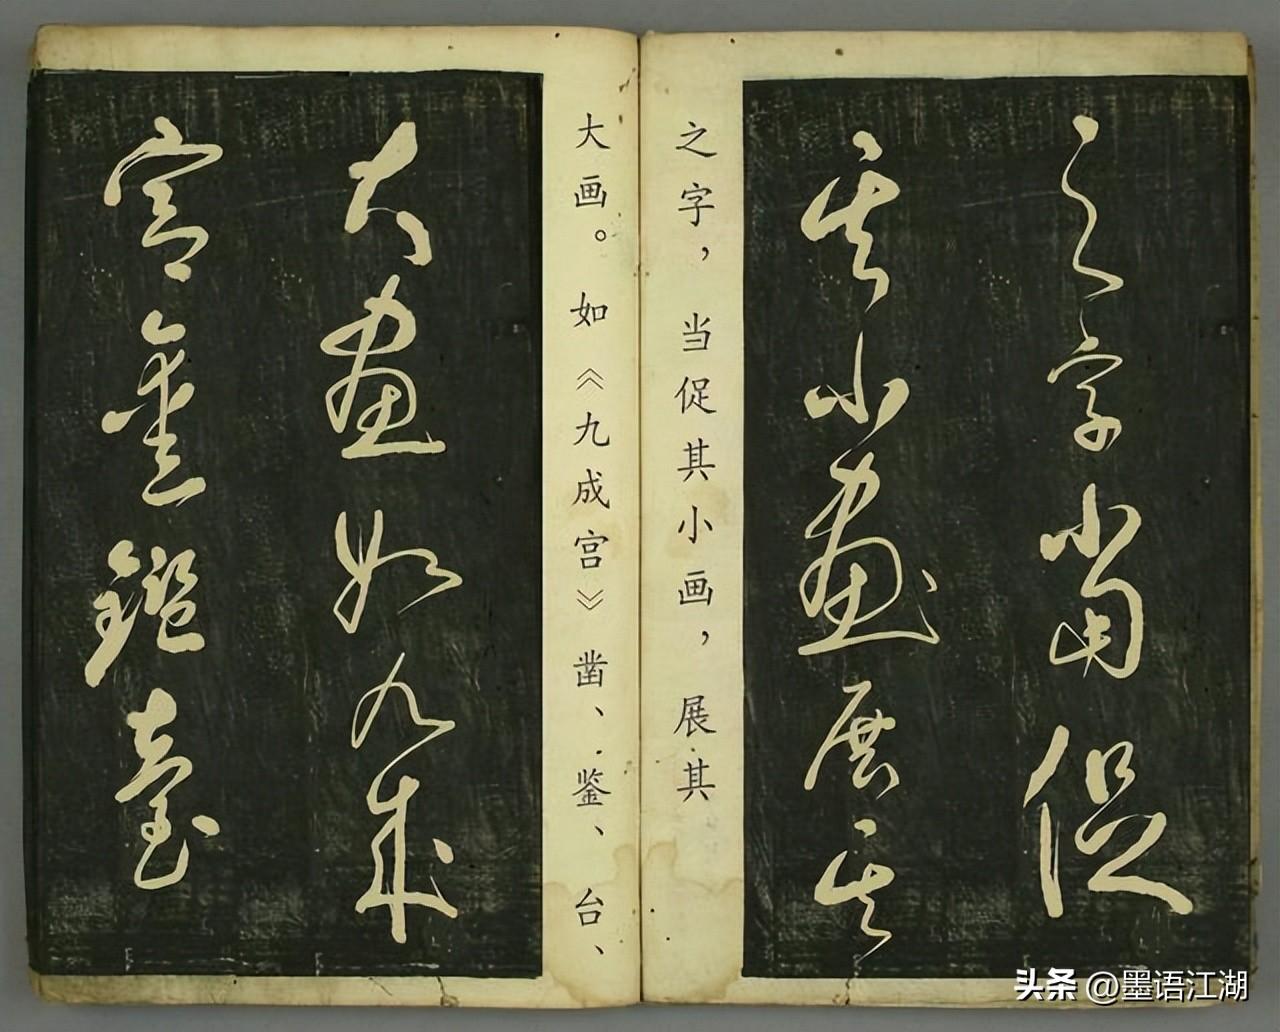 之字當促
其小畫展其
之字，当促其小画，展其
大画。如《九成宫》凿、鉴、台、
大畫如九成
宮鑿鑑臺
头条 @墨语江湖